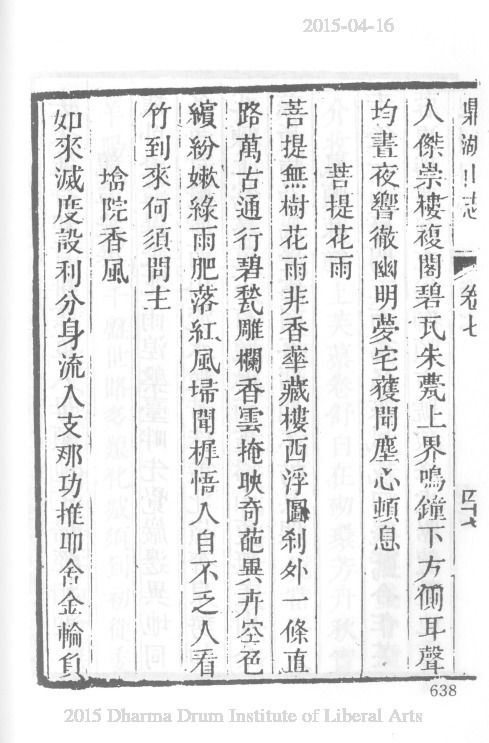 2015-04-16
鼎湖山志 卷七
人傑崇樓複閣碧瓦朱甍上界鳴鐘下方側耳聲
均晝夜響徹幽明夢宅獲聞塵心頓息
菩提花雨
菩提無樹花雨非香華藏樓西浮圖剎外一條直
路萬古通行碧甃雕欄香雲掩映奇葩異卉空色
繽紛嫩綠雨肥落紅風埽聞樨悟入自不乏人看
竹到來何須問主
墖院香風
如來滅度設利分身流入支那功推邵舍金輪負
638
2015 Dharma Drum Institute of Liberal Arts